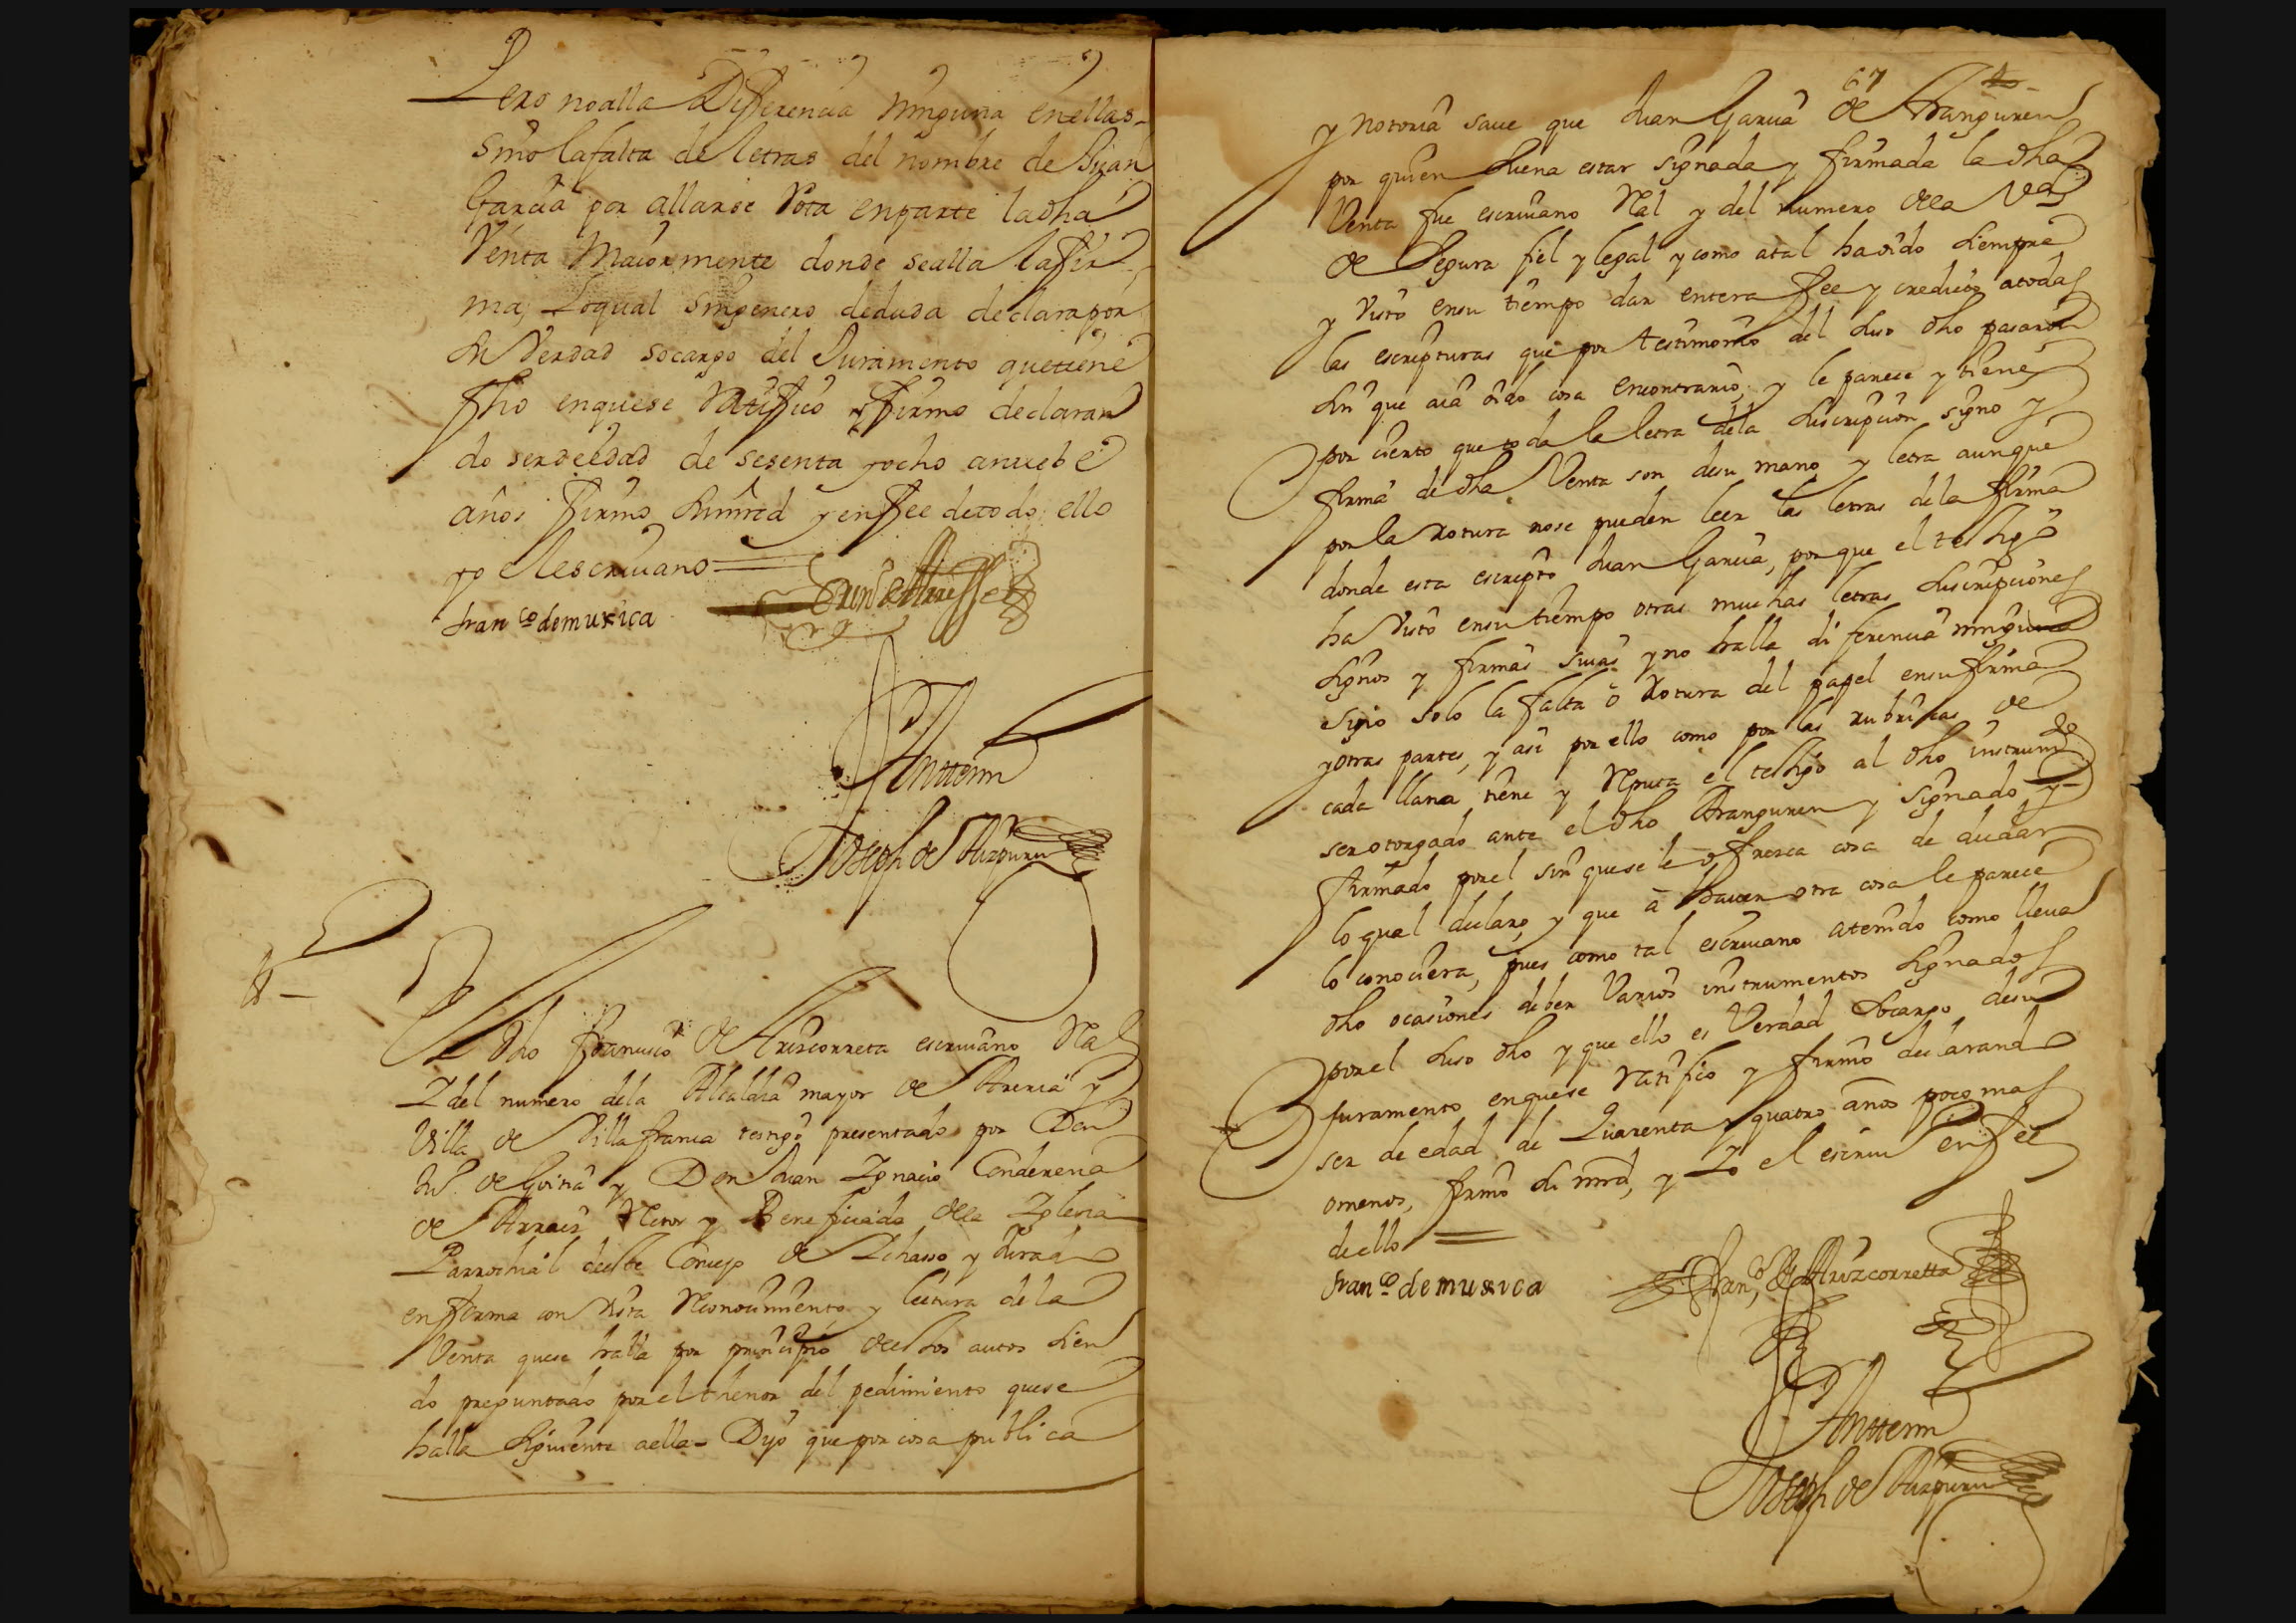 Pero no alla Differencia ninguna en ellas
sino la falta de letras del nombre de Juan
Garcia por allarse Rota en parte la dha
Venta Maiormente donde se alla la fir
ma, Lo qual sin genero de duda declara por
su Verdad so cargo del Juramento que tiene
fho en que se Ratifico y firmo declaran
do ser de edad de sesenta y ocho a nuebe
años firmo su mrd y en fee de todo ello
yo el escriuano
fran.co de muxica
Antemi
Joseph de Aizpuru
El dho Francisco de Arizcorreta escriuano Rl
Y del numero de la Alcaldia mayor de Areria y
Villa de Villafranca testigo presentado por Don
de Goitia y Don Juan Ignacio Conderena
de Arraiz Retor y Beneficiado de la Iglesia
Parrochial deste Concejo de Ichasso y Jurado
en forma con Vista Reconocimiento y lectura de la
Venta que se halla por principio de estos autos sien
do preguntado por el thenor del pedimiento que se
halla siguiente a ella - Dijo que por cosa publica
67
y notoria saue que Juan Garcia de Aranguren
por quien suena estar signada y firmada la dha
Venta fue escriuano Real y del numero de la Va
de Segura fiel y legal y como a tal ha oido siempre
y Visto en su tiempo dar entera fee y credito a todas
las escripturas que por testimonio del suso dho pasaron
sin que aia oido cosa en contrario, y le parece y tiene
por cierto que toda la letra de la suscripcion signo y
firma de dha Venta son de su mano y letra aunque
por la rotura no se pueden leer las letras de la firma
donde esta escripto Juan Garcia, por que el testigo
ha Visto en su tiempo otras muchas letras suscripciones
signos y firmas suias y no halla diferencia ninguna
sino solo la falta o Rotura del papel en su firma
y otras partes, y asi por ello como por las rubricas de
cada llana tiene y Reputa el testigo al dho instrumto
ser otorgado ante el dho Aranguren y signado y
firmado por el sin que se le ofrezca cosa de dudar
lo qual declaro, y que a hauer otra cosa le parece
lo conociera, pues como tal escriuano a tenido como lleua
dho ocasiones de ber Varios instrumentos signados
por el suso dho y que ello es Verdad so cargo de su
juramento en que se ratifico y firmo declarando
ser de edad de Quarenta y quatro años poco mas
o menos, firmo su mrd, y Yo el escriu en fee
de ello
fran.co de muxica
Fran.co de Arizcorretta
Antemi
Joseph de Aizpuru